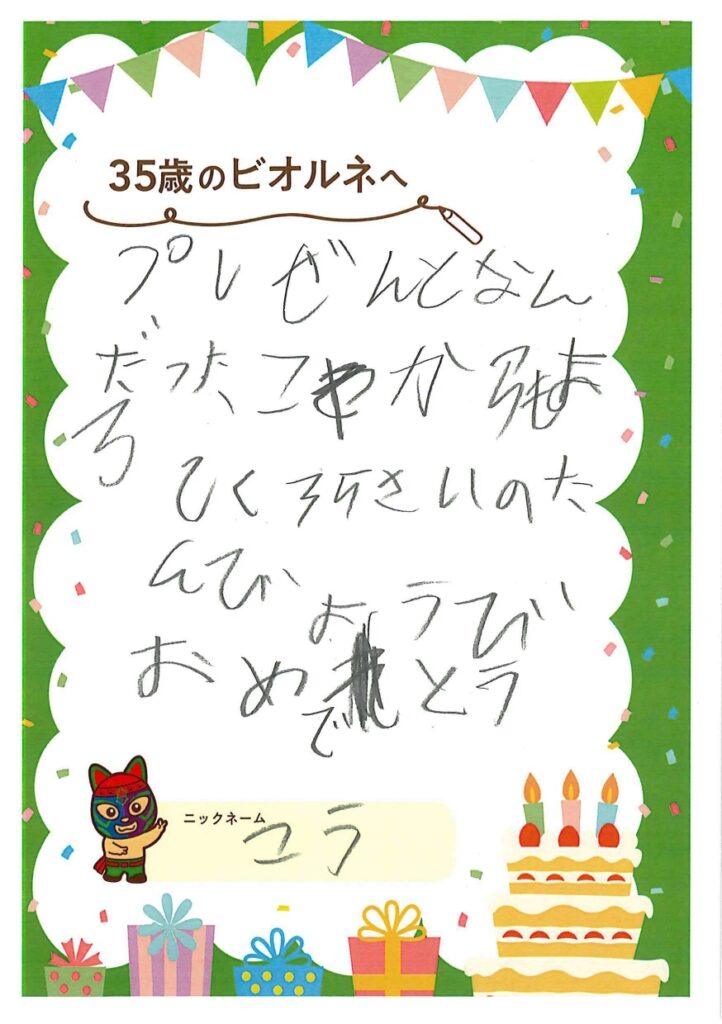 35歳のビオルネへ
プレぜんとなん
だった、こやか
ろ
ひく35さいのた
んびようび
おめでとう
ニックネーム
コラ